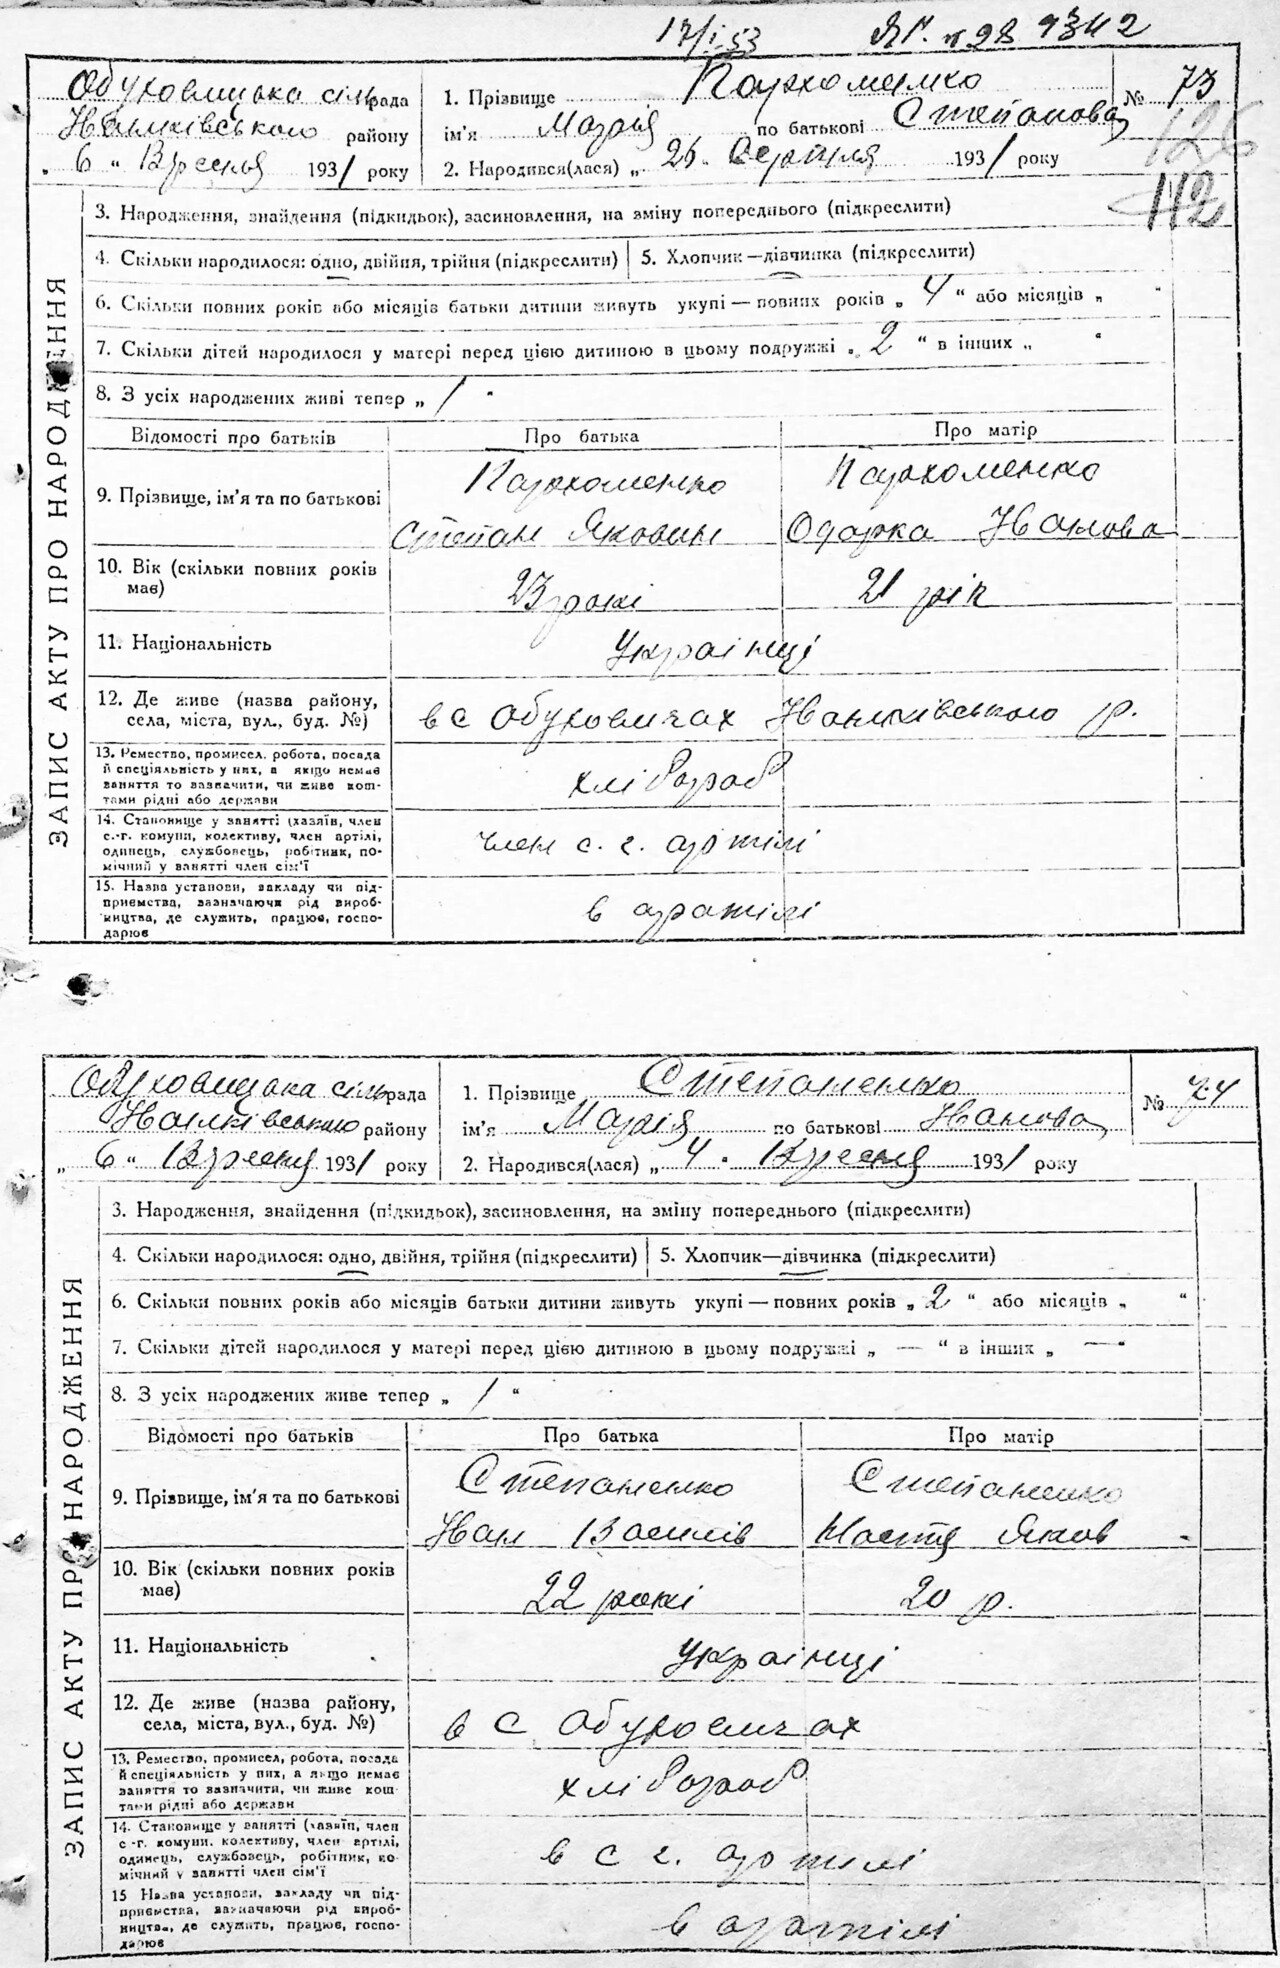 17/I.53 ЯГ. № 28 9342
Обуховицька сільрада
Іванківського району
„ 6 " Вересня 1931 року
1. Прізвище Пархоменко № 73
ім'я Марія по батькові Степанова
2. Народився(лася) „ 26 " Серпня 1931 року
126
112
ЗАПИС АКТУ ПРО НАРОДЖЕННЯ
3. Народження, знайдення (підкидьок), засиновлення, на зміну попереднього (підкреслити)
4. Скільки народилося: одно, двійня, трійня (підкреслити) 5. Хлопчик—дівчинка (підкреслити)
6. Скільки повних років або місяців батьки дитини живуть укупі — повних років „ 4 " або місяців „ "
7. Скільки дітей народилося у матері перед цією дитиною в цьому подружжі „ 2 " в інших „ "
8. З усіх народжених живі тепер „ 1 "
Відомості про батьків Про батька Про матір
9. Прізвище, ім'я та по батькові
Пархоменко Пархоменко
Степан Яковин Одарка Іванова
10. Вік (скільки повних років
має)
23 рокі 21 рік
11. Національність Українці
12. Де живе (назва району,
села, міста, вул., буд. №)
в с Обуховичах Іванківського р.
13. Ремество, промисел, робота, посада
й спеціяльність у них, а якщо немає
заняття то зазначити, чи живе кош-
тами рідні або держави
хлібороб
14. Становище у занятті (хазяїн, член
с.-г. комуни, колективу, член артілі,
одинець, службовець, робітник, по-
мічний у занятті член сім'ї
член с. г. артілі
15. Назва установи, закладу чи під-
приємства, зазначаючи рід вироб-
ництва, де служить, працює, госпо-
дарює
в артілі
Обуховицька сільрада
Іванківського району
„ 6 " Вересня 1931 року
1. Прізвище Степаненко № 74
ім'я Марія по батькові Іванова
2. Народився(лася) „ 4 " Вересня 1931 року
ЗАПИС АКТУ ПРО НАРОДЖЕННЯ
3. Народження, знайдення (підкидьок), засиновлення, на зміну попереднього (підкреслити)
4. Скільки народилося: одно, двійня, трійня (підкреслити) 5. Хлопчик—дівчинка (підкреслити)
6. Скільки повних років або місяців батьки дитини живуть укупі — повних років „ 2 " або місяців „ "
7. Скільки дітей народилося у матері перед цією дитиною в цьому подружжі „ — " в інших „ — "
8. З усіх народжених живе тепер „ 1 "
Відомості про батьків Про батька Про матір
9. Прізвище, ім'я та по батькові
Степаненко Степаненко
Іван Василів Настя Яков
10. Вік (скільки повних років
має)
22 рокі 20 р.
11. Національність Українці
12. Де живе (назва району,
села, міста, вул., буд. №)
в с Обуховичах
13. Ремество, промисел, робота, посада
й спеціяльність у них, а якщо немає
заняття то зазначити, чи живе кош-
тами рідні або держави
хлібороб
14. Становище у занятті (хазяїн, член
с-г. комуни, колективу, член артілі,
одинець, службовець, робітник, по-
мічний у занятті член сім'ї
в с г. артилі
15 Назва установи, закладу чи під-
приємства, зазначаючи рід вироб-
ництва, де служить, працює, госпо-
дарює
в артілі